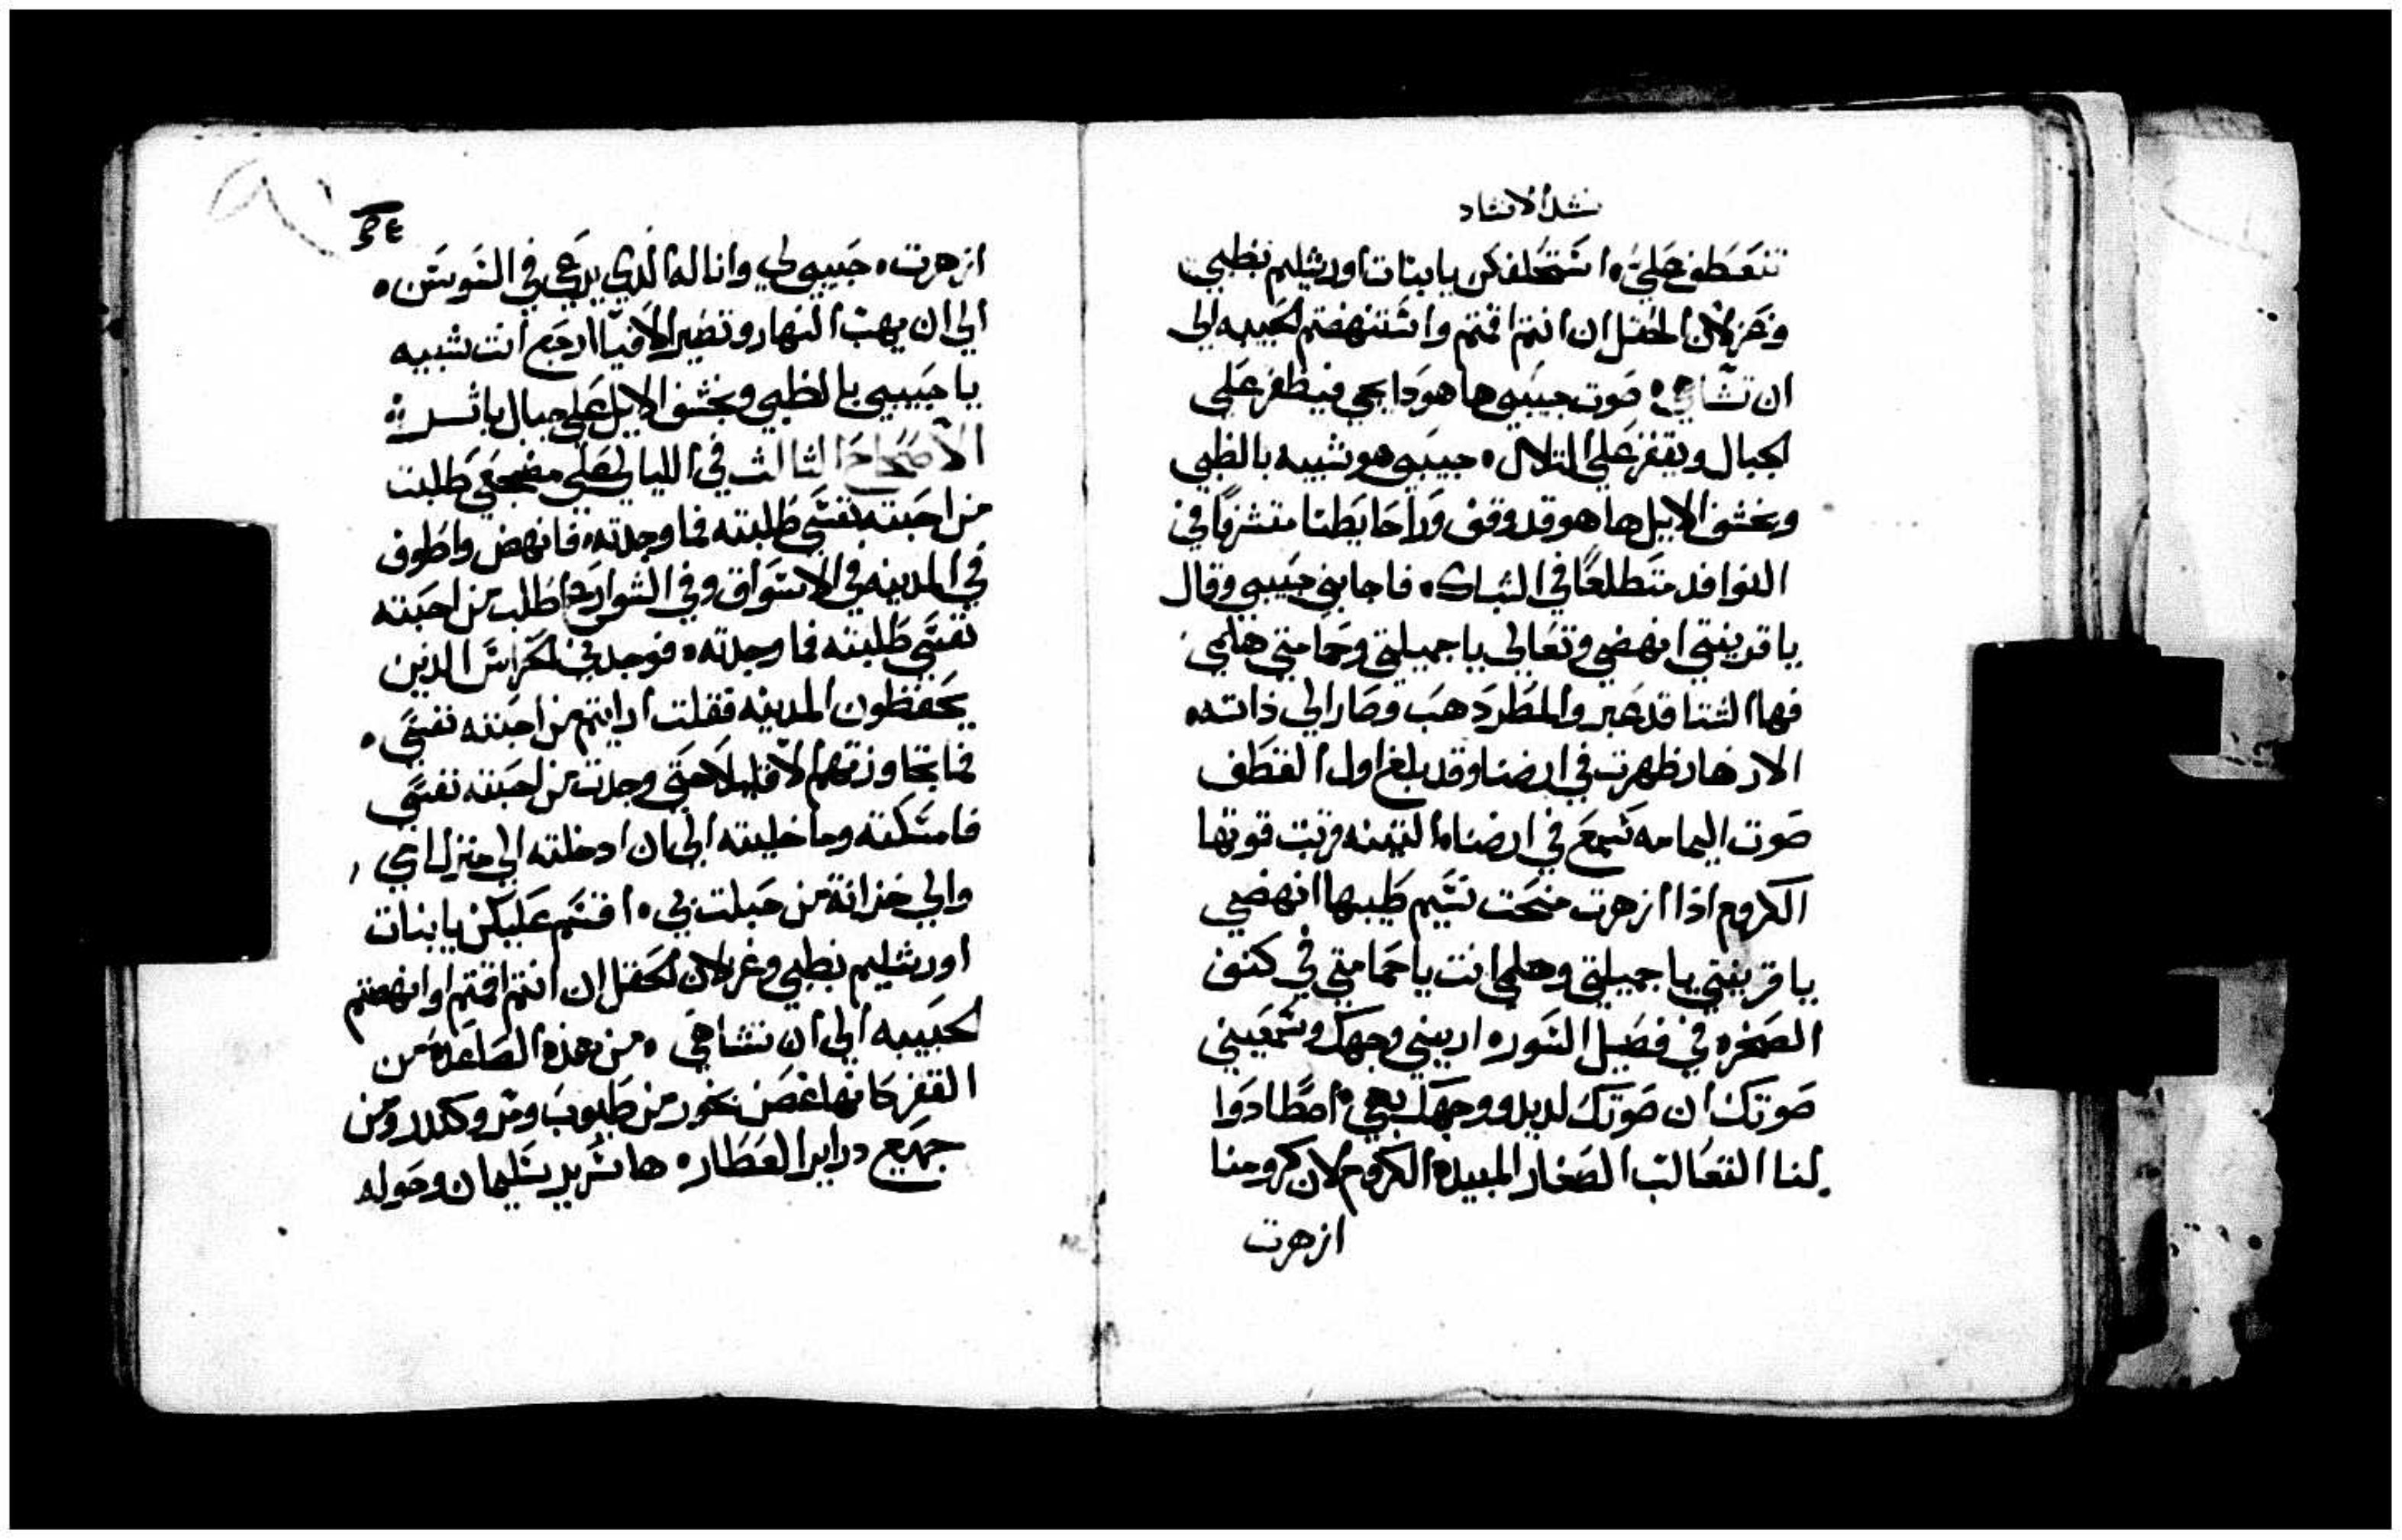 نشيد الانشاد
تنعطف علي، استحلفكن يا بنات اورشليم بظبي
وغزلان الحقل ان انتم اقمتم وانتهضتم الحبيبه الي
ان تشاهي، صوت حبيبي ها هودا يجي فيظفر علي
الجبال ويقفز علي التلال، حبيبي هو شبيه بالظبي
وبخشف الايل ها هو قد وقف ورا حايطنا متشرفا في
النوافد متطلعا في الشباك، فاجابني حبيبي وقال
يا قرينتي انهضي وتعالي يا جميلتي وحمامتي هلمي
فها الشتا قد عبر والمطر دهب وصار الي ذاته،
الازهار ظهرت في ارضنا وقد بلغ اول القطف
صوت اليمامه سمع في ارضنا، التينه قوتها
الكروم اذا ازهرت منحت نسيم طيبها انهضي
يا قرينتي يا جميلتي وهلمي انت يا حمامتي في كنف
الصخره في فصيل السور، اريني وجهك وسمعيني
صوتك ان صوتك لديد ووجهك بهي، اصطادوا
لنا التعالب الصغار المبيدة الكروم لان كرومنا
ازهرت
ازهرت، حبيبي لي وانا له الذي يرعي في السوسن،
الي ان يهب النهار وتصير الافيا ارجع انت شبيه
يا حبيبي بالظبي وبخشف الايل علي جبال باتر
الاصحاح الثالث في الليالي علي مضجعي طلبت
من احبته نفسي طلبته فما وجدته، فانهض واطوف
في المدينه في الاسواق وفي الشوارع اطلب من احبته
نفسي طلبته فما وجدته، فوجدني الحراس الذين
يحفظون المدينه فقلت ارايتم من احبته نفسي،
فما تجاوزتهم الا قليلا حتي وجدت من احبته نفسي
فامسكته وما خليته الي ان ادخلته الي منزل امي
والي خزانة من حبلت بي، اقسم عليكن يا بنات
اورشليم بظبي وغزلان الحقل ان انتم اقمتم او انهضتم
الحبيبه الي ان تشاهي، من هذه الصاعدة من
القفر كانها غصن بخور من طيوب ومر وكندر ومن
جميع دراير العطار، ها سرير سليمان وحوله